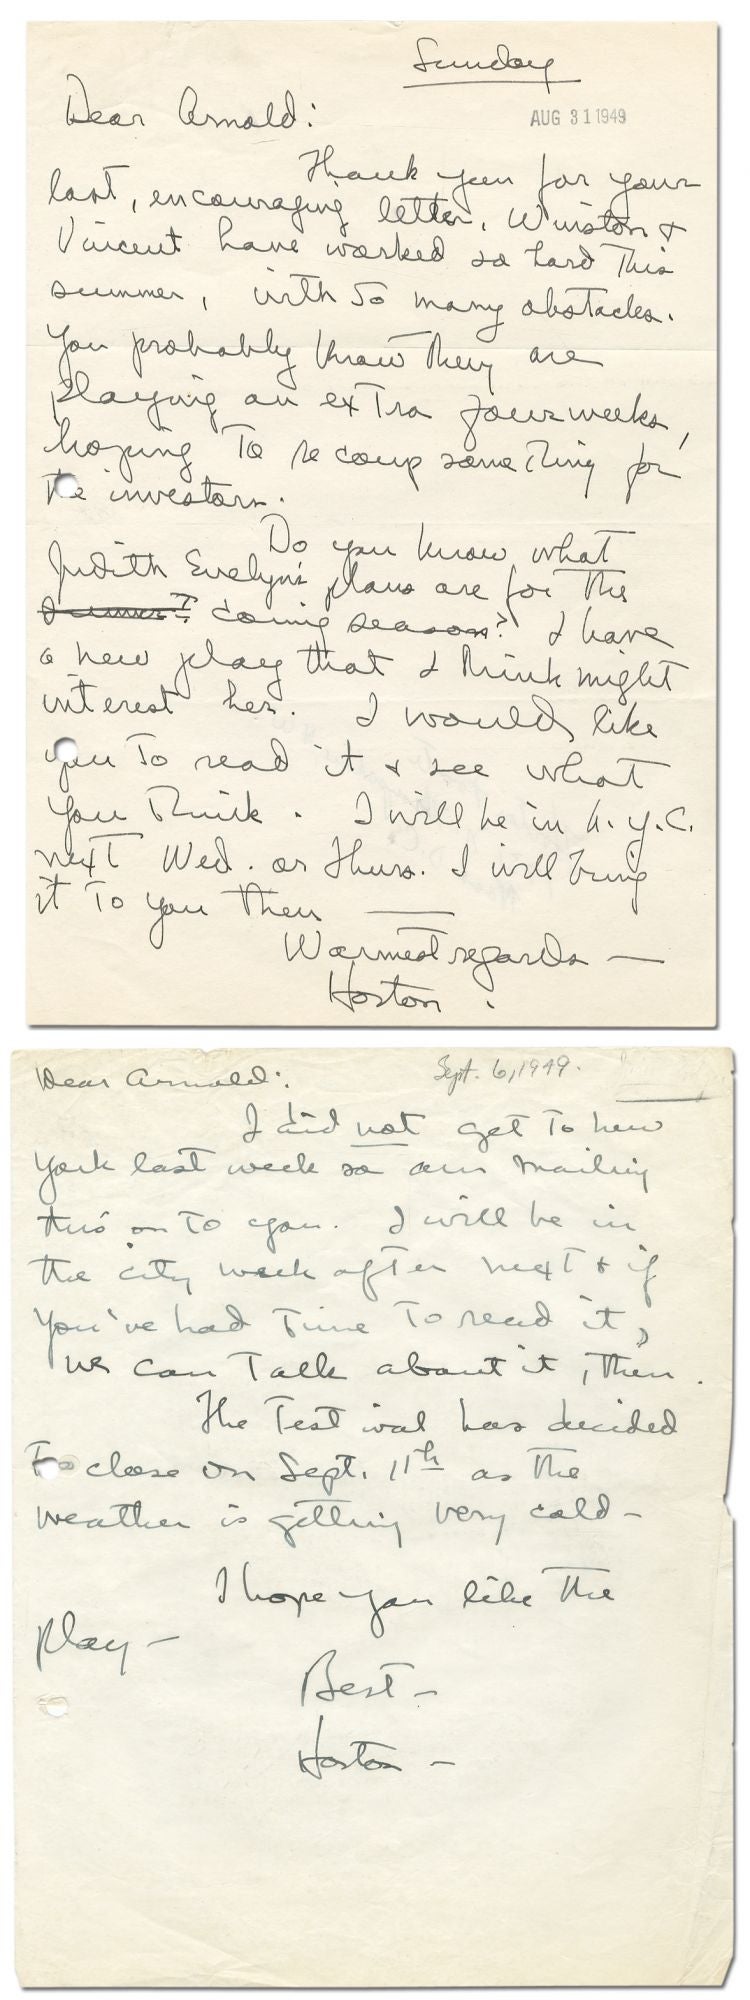 Sunday
Dear Arnold:
AUG 31 1949
Thank you for your
last, encouraging letter. Winston &
Vincent have worked so hard this
summer, with so many obstacles.
You probably know they are
playing an extra four weeks,
hoping to recoup something for
the investors.
Do you know what
Judith Evelyn's plans are for the
coming season? I have
a new play that I think might
interest her. I would like
you to read it & see what
you think. I will be in N.Y.C.
next Wed. or Thurs. I will bring
it to you then —
Warmest regards —
Horton.
Dear Arnold:
Sept. 6, 1949.
I did not get to New
York last week so am mailing
this on to you. I will be in
the city week after next & if
you've had time to read it,
we can talk about it, then.
The Festival has decided
to close on Sept. 11th as the
weather is getting very cold —
I hope you like the
play —
Best —
Horton —